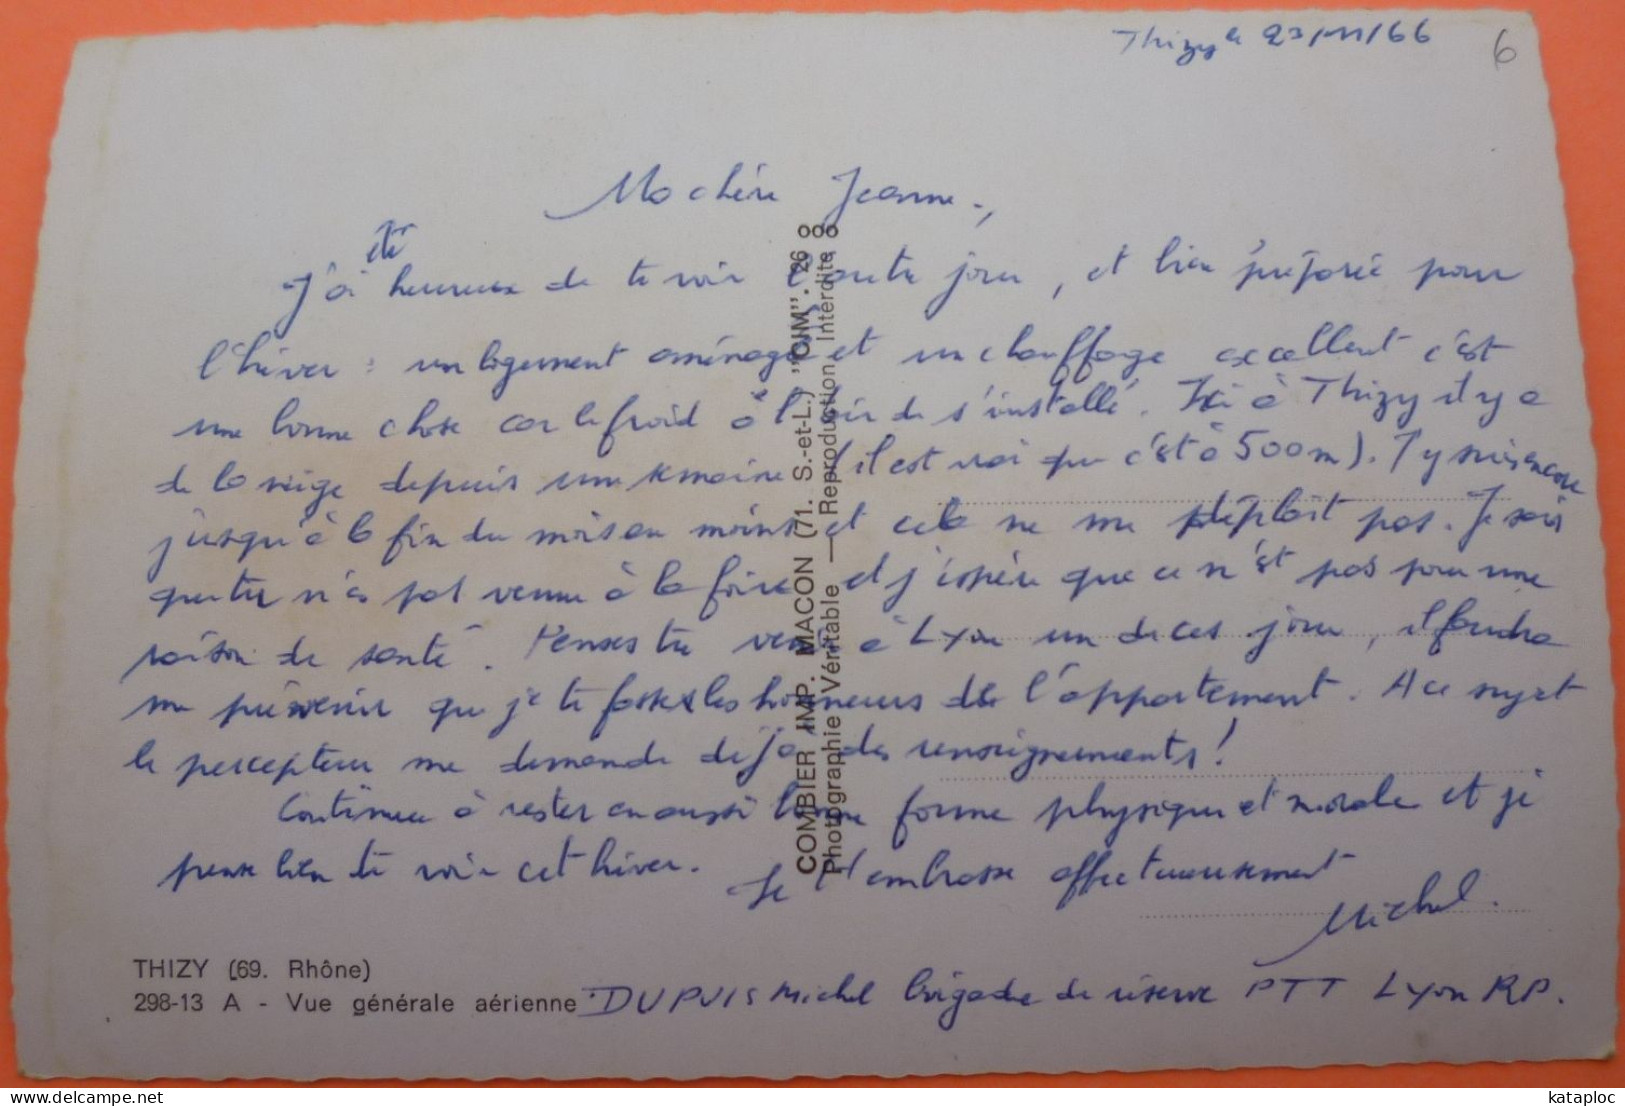 Thizy le 23/11/66
6
Ma chère Jeanne.,
été
J'ai heureux de te voir l'autre jour, et bien préparée pour
l'hiver : un logement aménagé et un chauffage excellent c'est
une bonne chose car le froid à l'air de s'installé. Ici à Thizy il y a
de la neige depuis une semaine (il est vrai que c'est à 500m). J'y suis encore
jusqu'à la fin du mois au moins et cela ne me déplait pas. Je sais
que tu n'es pas venue à la foire et j'espère que ce n'est pas pour une
raison de santé. Penses tu venir à Lyon un de ces jours, il faudra
me prévenir que je te fasse les honneurs de l'appartement. A ce sujet
le percepteur me demande déjà des renseignements !
Continue à rester en aussi bonne forme physique et morale et je
pense bien te voir cet hiver. Je t'embrasse affectueusement
Michel.
THIZY (69. Rhône)
298-13 A - Vue générale aérienne
DUPUIS Michel brigade de réserve PTT Lyon RP.
COMBIER IMP. MACON (71. S.-et-L.) "CIM". 26
Photographie Véritable — Reproduction Interdite
delcampe.net
kataploc